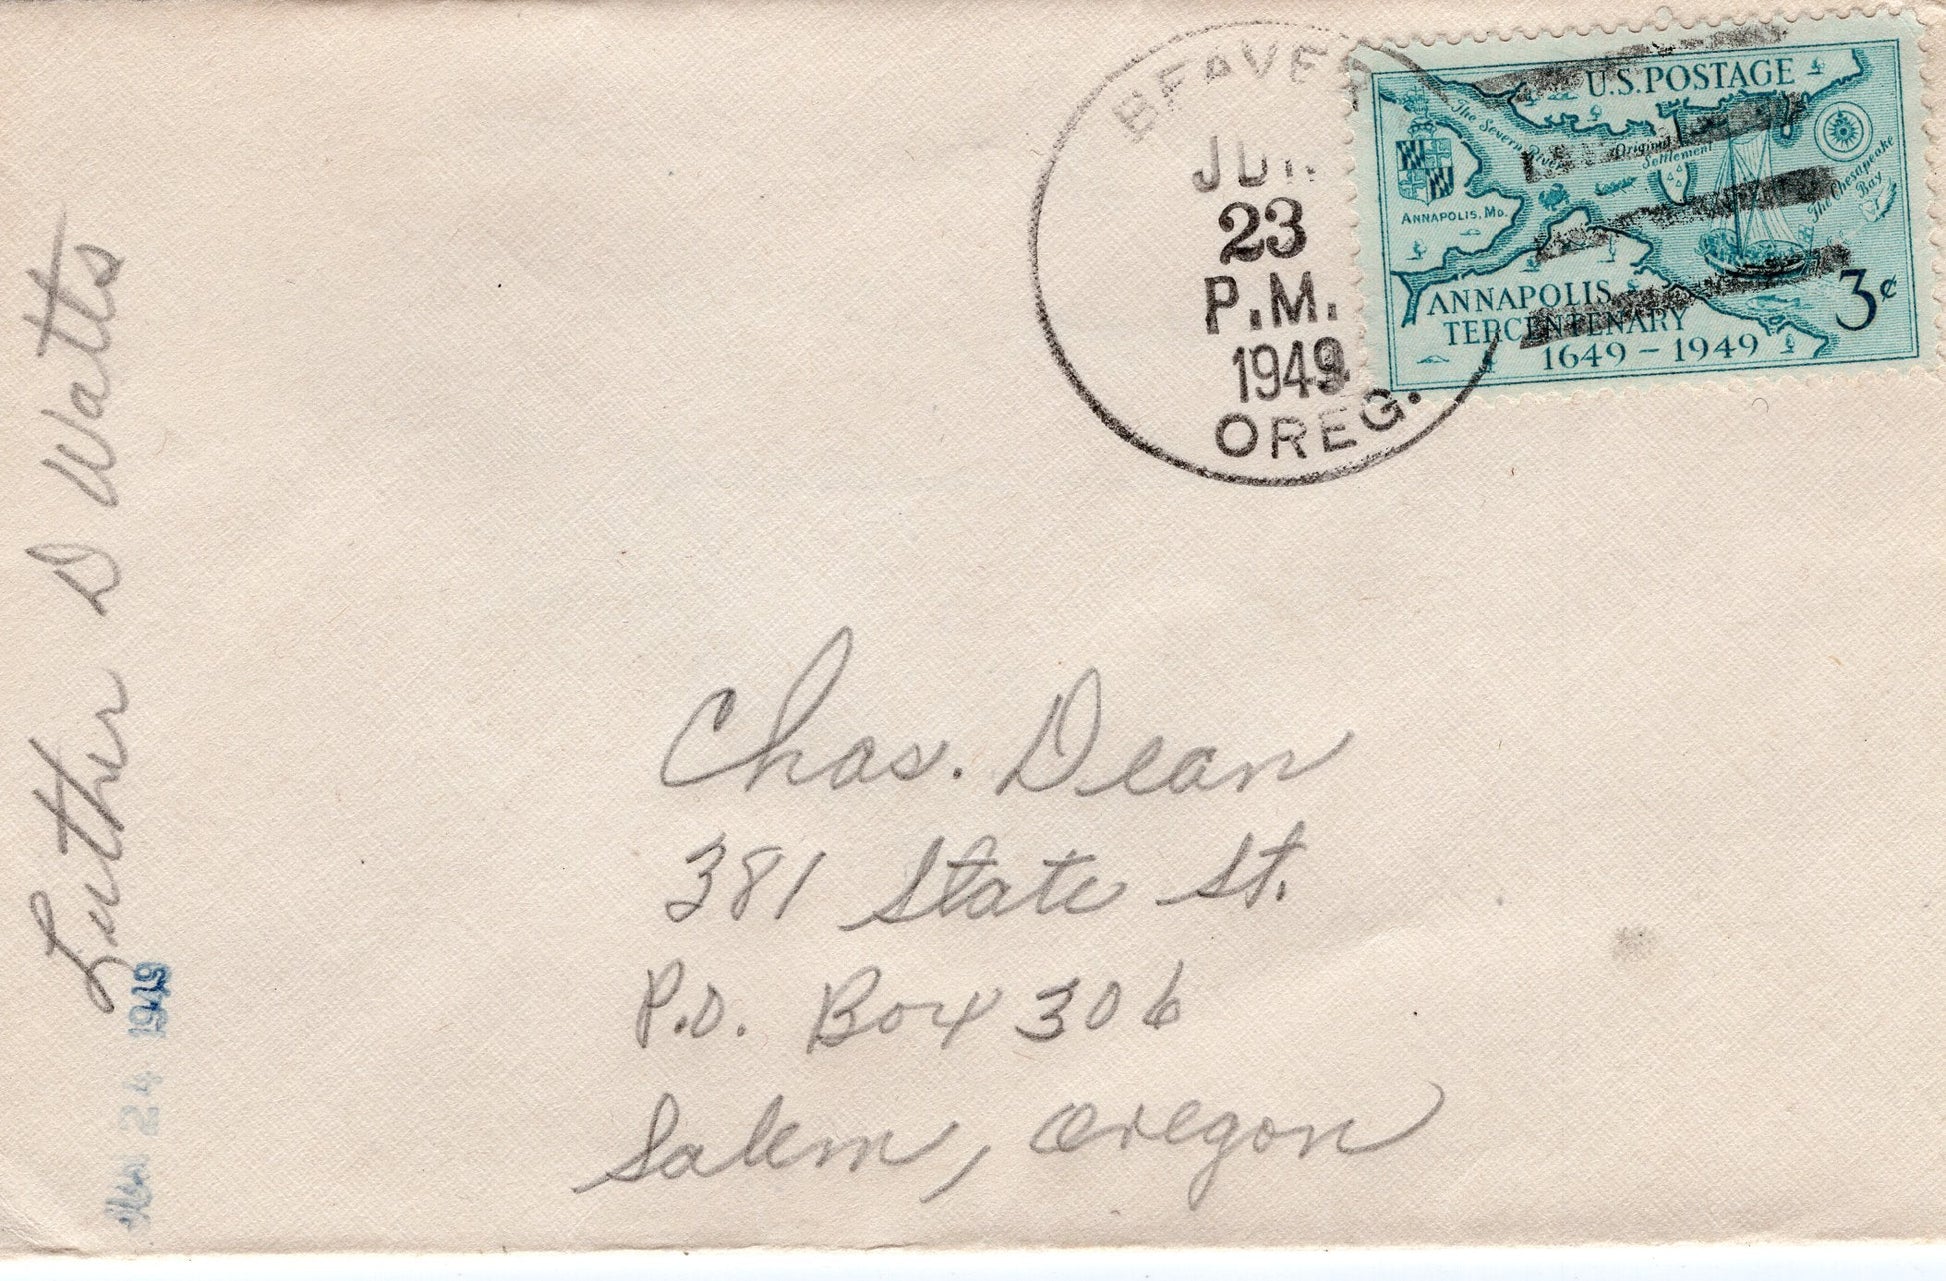 BEAVER
23
P.M.
1949
OREG.
U.S. POSTAGE
The Severn River
Original
Settlement
The Chesapeake
Bay
ANNAPOLIS, MD.
ANNAPOLIS
TERCENTENARY
1649 - 1949
3¢
Luther D Watts
24 1949
Chas. Dean
381 State St.
P.O. Box 306
Salem, Oregon